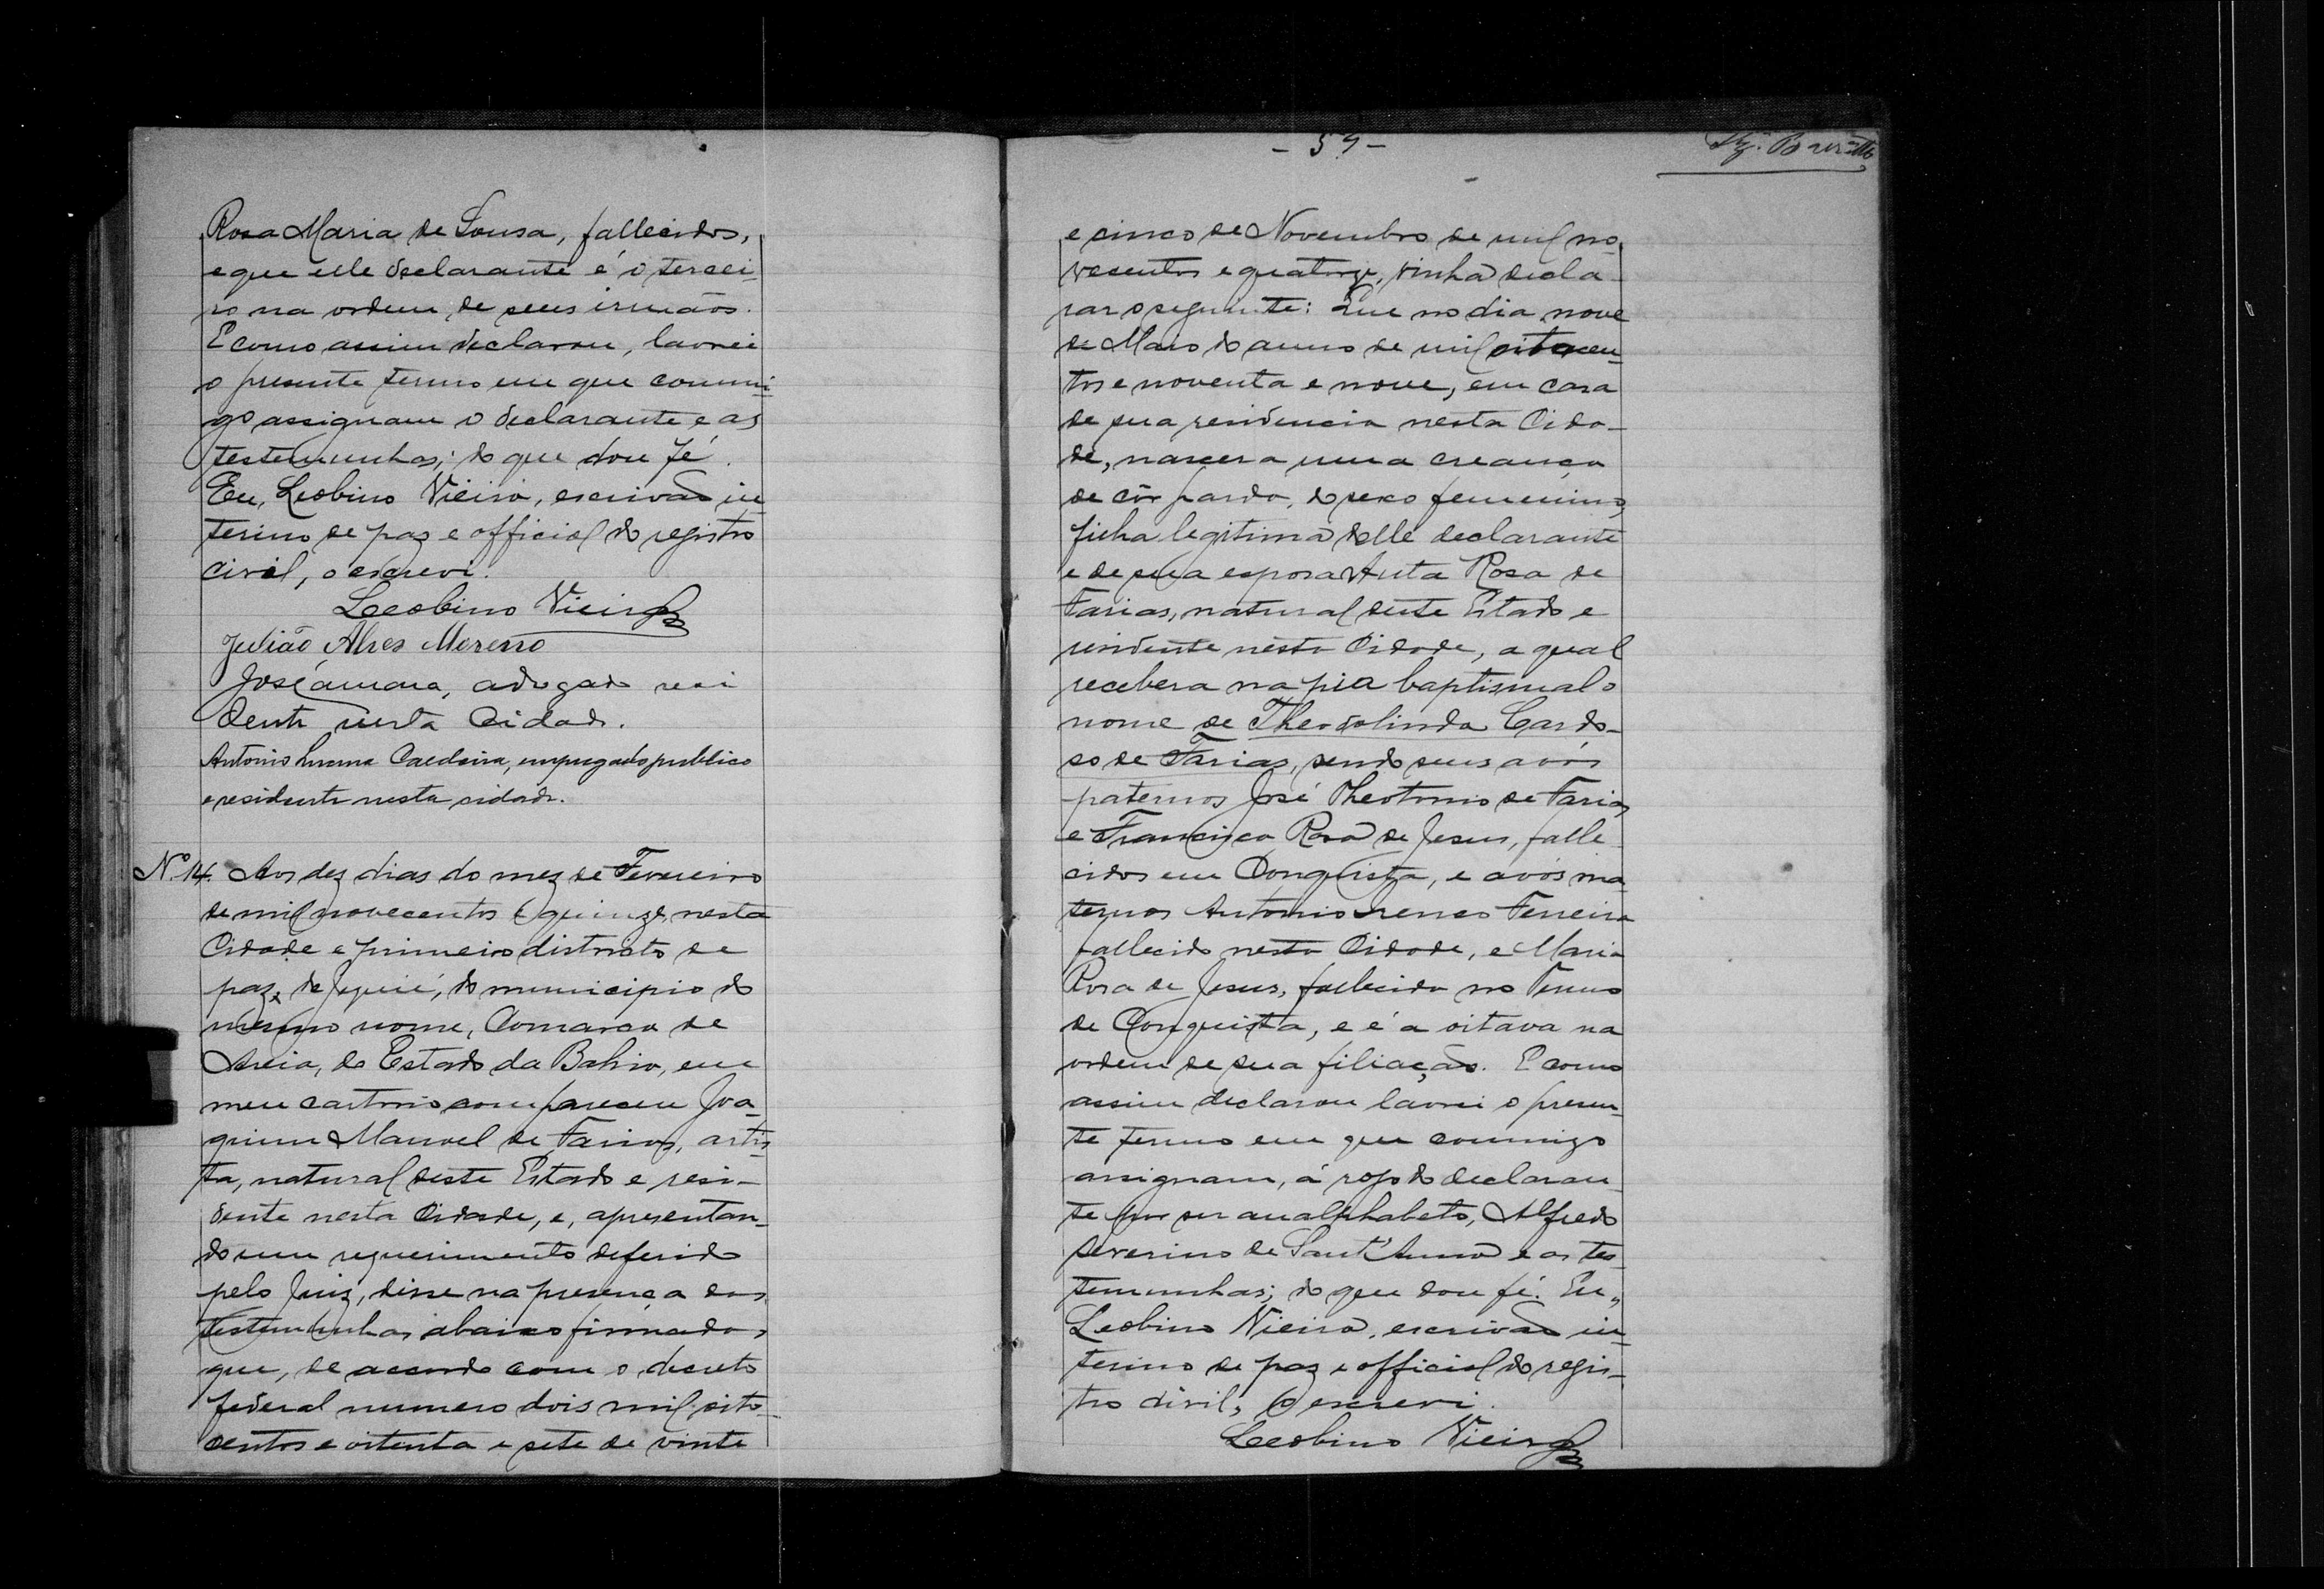 Rosa Maria de Sousa, fallecidos,
e que elle declarante é o tercei-
ro na ordem de seus irmãos.
E como assim declarou, lavrei
o presente termo em que commi-
go assignam o declarante e as
testemunhas; do que dou fé.
Eu, Leobino Vieira, escrivão in-
terino de paz e official do registro
civil, o escrevi.
Leobino Vieira
Julião Alves Moreno
José amara, advogado resi
dente nesta Cidade.
Antonio Caldeira, empregado publico
e residente nesta cidade.
Nº 14. Aos dez dias do mez de Fevereiro
de mil novecentos e quinze, nesta
Cidade e primeiro districto de
paz de Jequié, do municipio do
mesmo nome, Comarca de
Areia, do Estado da Bahia, em
meu cartorio compareceu Joa-
quim Manoel de Farias, artis-
ta, natural deste Estado e resi-
dente nesta Cidade, e, apresentan-
do um requerimento deferido
pelo Juiz, disse na presença das
testemunhas abaixo firmadas
que, de accordo com o decreto
federal numero dois mil oito-
centos e oitenta e sete de vinte
- 59 -
e cinco de Novembro de mil no-
vecentos e quatorze, vinha decla-
rar o seguinte: Que no dia nove
de Maio do anno de mil oitocen-
tos e noventa e nove, em casa
de sua residencia nesta Cida-
de, nascera uma creança
de côr parda, do sexo femenino,
filha legitima delle declarante
e de sua esposa Anta Rosa de
Farias, natural deste Estado e
residente nesta Cidade, a qual
recebera na pia baptismal o
nome de Theodolinda Cardo-
so de Farias, sendo seus avós
paternos José Theotonio de Farias
e Francisca Rosa de Jesus, falle
cidos em Conquista, e avós ma-
ternos Antonio Ferreira
fallecido nesta Cidade, e Maria
Rosa de Jesus, fallecida no Termo
de Conquista, e é a oitava na
ordem de sua filiação. E como
assim declarou lavrei o presen-
te termo em que commigo
assignam, á rogo do declaran-
te por ser analphabeto, Alfredo
Severino de Sant'Anna e as tes-
temunhas; do que dou fé. Eu,
Leobino Vieira, escrivão in-
terino de paz e official do regis-
tro civil, o escrevi.
Leobino Vieira